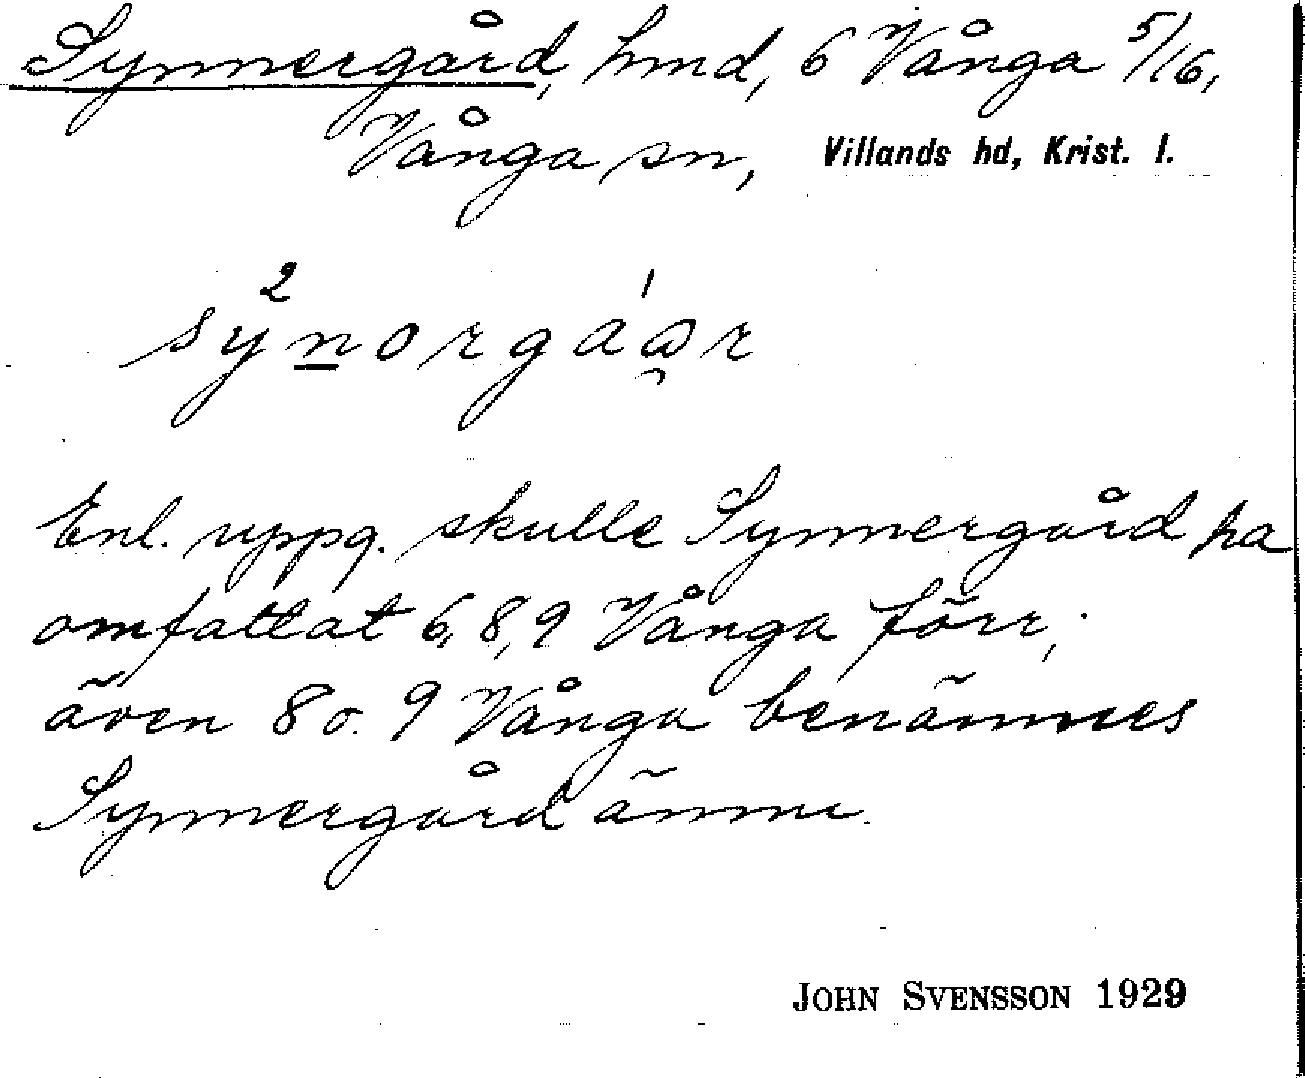 Synnergård, hmd, 6 Vånga 5/16,
Vånga sn, Villands hd, Krist. l.
sy²norgáa̯¹r
Enl. uppg. skulle Synnergård ha
omfattat 6, 8, 9 Vånga förr;
även 8 o. 9 Vånga benämnes
Synnergård ännu.
JOHN SVENSSON 1929